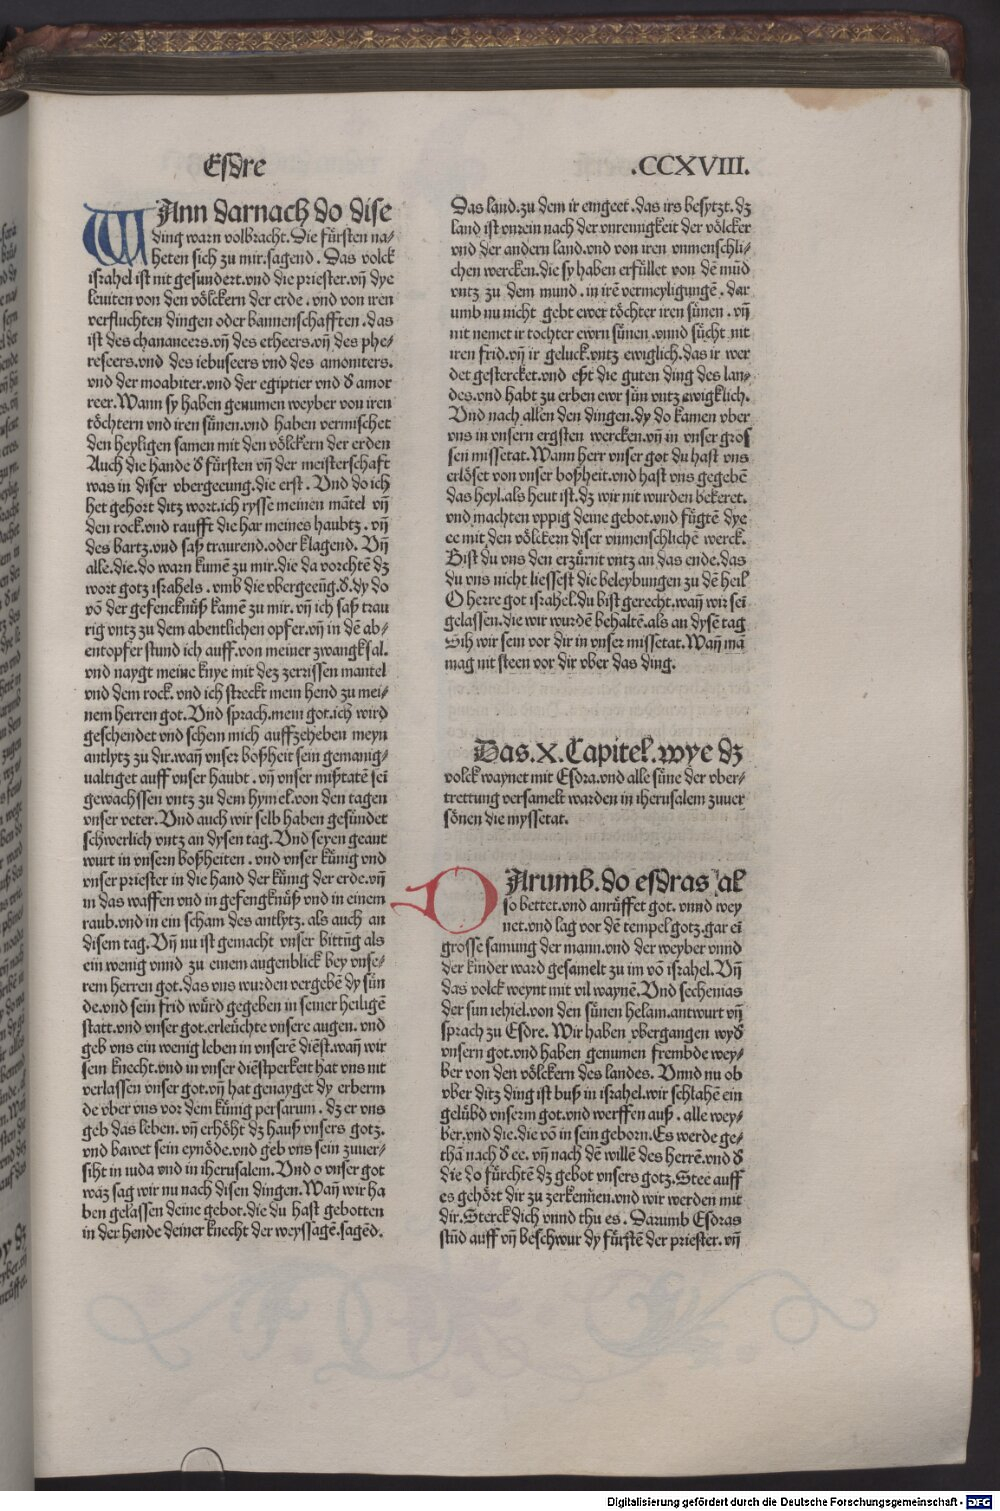 Esdre
.CCXVIII.
WAnn darnach do dise
ding warn volbracht. Die fürsten na⸗
heten sich zu mir. sagend. Das volck
israhel ist nit gesundert. vnd die priester. vñ dye
leuiten von den völckern der erde. vnd von iren
verfluchten dingen oder bannenschafften. das
ist des chananeers. vñ des etheers. vñ des phe⸗
reseers. vnd des iebuseers vnd des amoniters.
vnd der moabiter. vnd der egiptier vnd d amor
reer. Wann sy haben genumen weyber von iren
töchtern vnd iren sünen. vnd haben vermischet
den heyligen samen mit den völckern der erden
Auch die hande d fürsten vñ der meisterschafft
was in diser vbergeeung. die erst. Vnd do ich
het gehört ditz wort. ich rysse meinen mãtel vñ
den rock. vnd raufft die har meines haubtz. vñ
des bartz. vnd saß traurend. oder klagend. Vñ
alle. die. do warn kumẽ zu mir. die da vorchtẽ dz
wort gotz israhels. vmb die vbergeeũg. d. dy do
võ der gefencknüß kamẽ zu mir. vñ ich saß trau
rig vntz zu dem abentlichen opfer. vñ in dẽ ab⸗
entopfer stund ich auff. von meiner zwangksal.
vnd naygt meine knye mit dez zerrissen mantel
vnd dem rock. vnd ich streckt mein hend zu mei⸗
nem herren got. Vnd sprach. mein got. ich wird
geschendet vnd schem mich auffzeheben meyn
antlytz zu dir. wañ vnser boßheit sein gemanig⸗
ualtiget auff vnser haubt. vñ vnser mißtatẽ sei
gewachssen vntz zu dem hymel. von den tagen
vnser veter. Vnd auch wir selb haben gesündet
schwerlich vntz an dysen tag. Vnd seyen geant
wurt in vnsern boßheiten. vnd vnser künig vnd
vnser priester in die hand der künig der erde. vñ
in das waffen vnd in gefengknüß vnd in einem
raub. vnd in ein scham des antlytz. als auch an
disem tag. Vñ nu ist gemacht vnser bittũg als
ein wenig vnnd zu einem augenblick bey vnse⸗
rem herren got. das vns wurden vergebẽ dy sün
de. vnd sein frid würd gegeben in seiner heiligẽ
statt. vnd vnser got. erleüchte vnsere augen. vnd
geb vns ein wenig leben in vnserẽ diẽst. wañ wir
sein knecht. vnd in vnser diẽstperkeit hat vns nit
verlassen vnser got. vñ hat genayget dy erberm
de vber vns vor dem künig persarum. dz er vns
geb das leben. vñ erhöht dz hauß vnsers gotz.
vnd bawet sein eynöde. vnd geb vns sein zuuer⸗
siht in iuda vnd in iherusalem. Vnd o vnser got
waz sag wir nu nach disen dingen. Wañ wir ha
ben gelassen deine gebot. die du hast gebotten
in der hende deiner knecht der weyssagẽ. sagẽd.
Das land. zu dem ir eingeet. das irs besytzt. dz
land ist vnrein nach der vnreinigkeit der völcker
vnd der andern land. vnd von iren vnmenschli⸗
chen wercken. die sy haben erfüllet von dẽ mũd
vntz zu dem mund. in irẽ vermeyligungẽ. dar
umb nu nicht gebt ewer töchter iren sünen. vñ
nit nemet ir tochter ewrn sünen. vnnd sücht nit
iren frid. vñ ir geluck. vntz ewiglich. das ir wer
det gestercket. vnd eßt die guten ding des lan⸗
des. vnd habt zu erben ewr sün vntz ewigklich.
Vnd nach allen den dingen. dy do kamen vber
vns in vnsern ergsten wercken. vñ in vnser gros
sen missetat. Wann herr vnser got du hast vns
erlöset von vnser boßheit. vnd hast vns gegebẽ
das heyl. als heut ist. dz wir nit wurden bekeret.
vnd machten vppig deine gebot. vnd fügtẽ dye
ee mit den völckern diser vnmenschlichẽ werck.
Bist du vns den erzürnt vntz an das ende. das
du vns nicht liessest die beleybungen zu dẽ heil
O herre got israhel. du bist gerecht. wañ wir sei
gelassen. die wir wurdẽ behaltẽ. als an dysẽ tag
Sih wir sein vor dir in vnser missetat. Wañ mã
mag nit steen vor dir vber das ding.
Das. X. Capitel. wye dz
volck waynet mit Esdra. vnd alle süne der vber⸗
trettung versamelt warden in iherusalem zuuer
sönen die myssetat.
DArumb. do esdras al
so bettet. vnd anrüffet got. vnnd wey
net. vnd lag vor dẽ tempel gotz. gar ei
grosse samung der mann. vnd der weyber vnnd
der kinder ward gesamelt zu im võ israhel. Vñ
das volck weynt mit vil waynẽ. Vnd sechenias
der sun iehiel. von den sünen helam. antwurt vñ
sprach zu Esdre. Wir haben vbergangen wyd
vnsern got. vnd haben genumen frembde wey⸗
ber von den völckern des landes. Vnnd nu ob
vber ditz ding ist buß in israhel. wir schlahẽ ein
gelübd vnserm got. vnd werffen auß. alle wey⸗
ber. vnd die. die võ in sein geborn. Es werde ge⸗
thã nach d ee. vñ nach dẽ willẽ des herrẽ. vnd d
die do fürchtẽ dz gebot vnsers gotz. Stee auff
es gehört dir zu zerkeñen. vnd wir werden mit
dir. Sterck dich vnnd thu es. Darumb Esdras
stũd auff vñ beschwur dy fürstẽ der priester. vñ
Digitalisierung gefördert durch die Deutsche Forschungsgemeinschaft - DFG